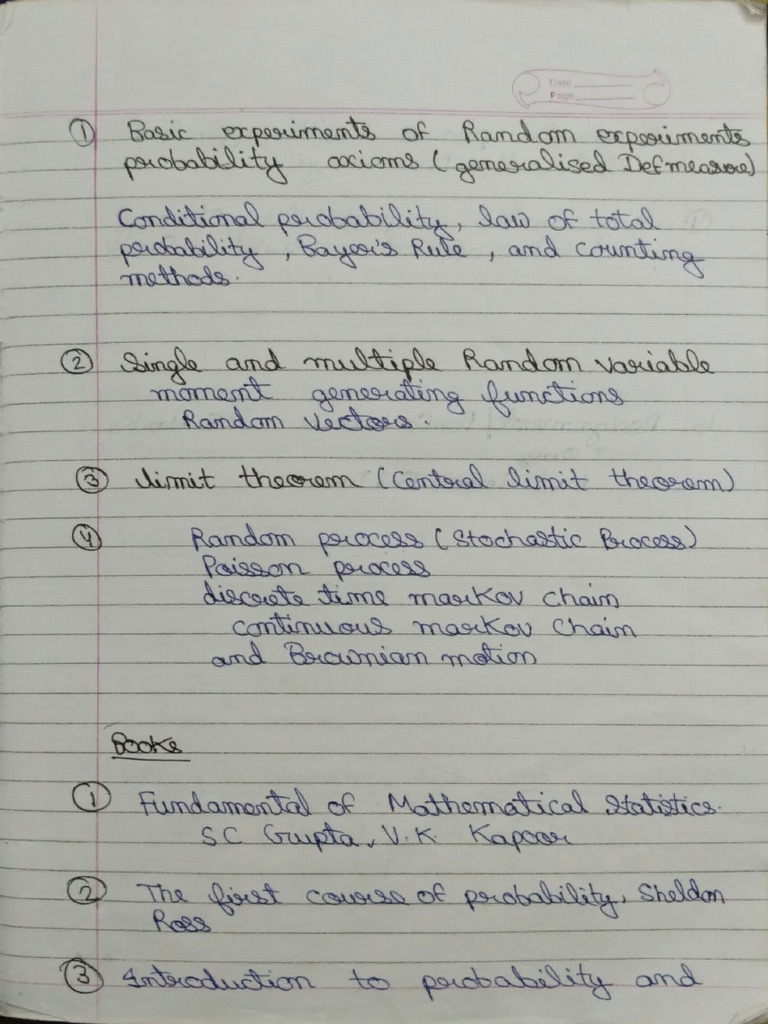 Date
Page
① Basic experiments of Random experiments
probability axioms (generalised Def measure)
Conditional probability, law of total
probability, Bayer's Rule, and counting
methods.
② Single and multiple Random variable
moment generating functions
Random vectors.
③ limit theorem (Central limit theorem)
④ Random process (Stochastic Process)
Poisson process
discrete time markov chain
continuous markov Chain
and Brownian motion
Books
① Fundamental of Mathematical Statistics.
SC Gupta, V.K. Kapoor
② The first course of probability, Sheldon
Ross
③ Introduction to probability and